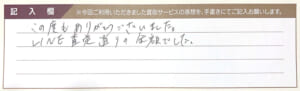 記入欄
※今回ご利用いただきました貸衣サービスの感想を、手書きにてご記入お願いします。
この度もありがとうございました。
LINE 査定通りの金額でした。